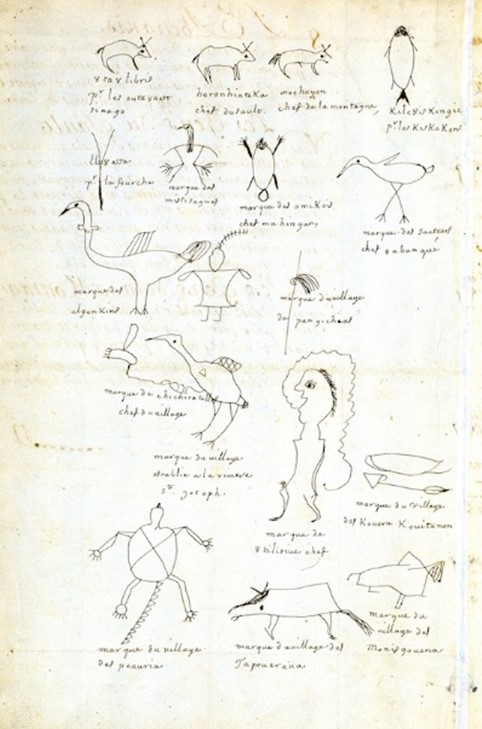 8ta8libois
pr les outavacs
sinago
haronhiateka
chef du sault.
mechayon
chef de la montagne,
Kile8isKingie
pr les KisKaKons
Elas8a
pr la fourche
marque des
missisagues
marque des amiKois
chef mahingan,
marque des sauteurs
chef 8abangué
marque des
algonKins
marque du village
de pangicheas
marque de chichicatalo
chef du village
marque du village
establie a la riviere
St. joseph.
marque de
8tilirine chef
marque du village
des Kouera Kouitanon
marque du village
des peauria
marque du village des
Tapouaroua
marque du
village des
Monisgouena